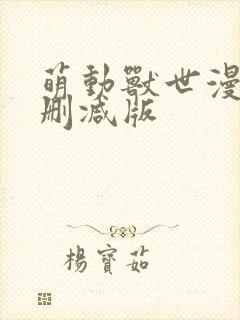 萌動獸世漫
刪減版
楊寶茹